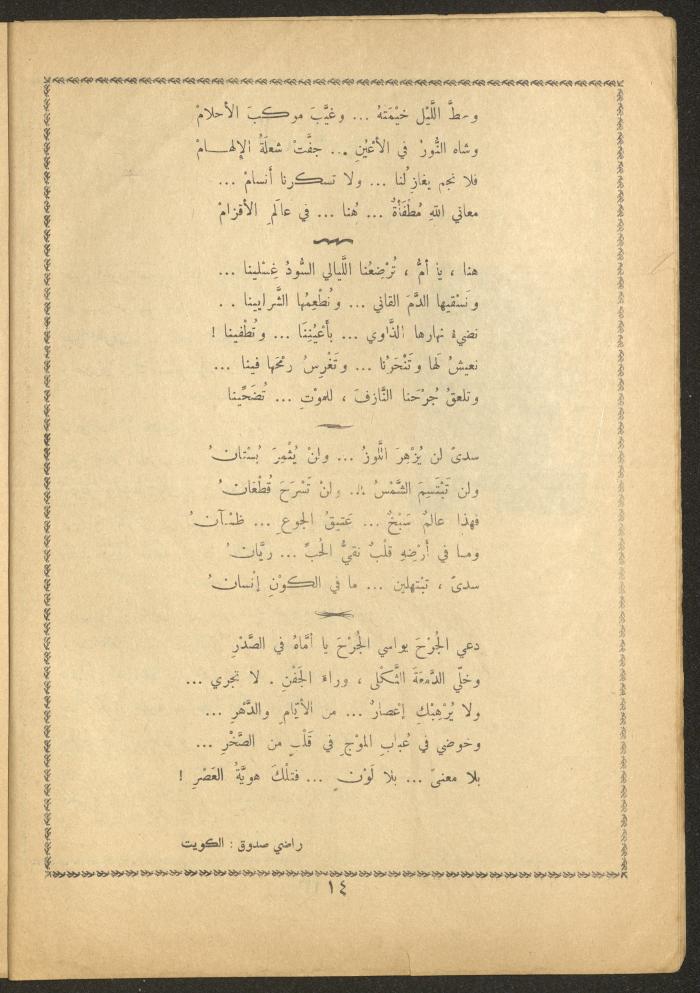 وحطَّ اللَّيْل خيْمَتهُ ... وغيَّبَ موكبَ الأحلامْ
وشاه النُّورْ في الأعْيُنِ ... جفَّتْ شعلَةُ الإِلهـــامْ
فلا نجم يغازِلُنا ... ولا تسكرنا أنسامْ ...
معاني اللهِ مُطْفَأَةٌ ... هُنا ... في عالَمِ الأقزامْ
هنا ، يا أمُّ ، تُرْضِعُنا اللَّيالي السُّودُ غِسْلينا ...
ونَسْقيها الدَّمَ القاني ... ونُطْعِمُها الشَّرايينا . .
نضيء نهارها الذَّاوي ... بأَعْيُنِنَا ... وتُطْفينا !
نعيشُ لَها وتَنْحَرُنا ... وتَغْرِسُ رمْحَها فينا ...
وتلعقُ جُرْحَنا النَّازفَ ، للموْتِ ... تُضَحِّينا
سدىً لن يُزْهِرَ اللَّوزُ ... ولنْ يُثْمِرَ بُسْتانُ
ولن تَبْتَسِمَ الشَّمْسُ ... ولنْ تَسْرَحَ قُطْعَانُ
فهذا عالمٌ سَبْخٌ ... عَتيقُ الجوعِ ... ظمْآنُ
ومـا في أَرْضِهِ قلْبٌ نقيُّ الحُبِّ ... ريَّانُ
سدىً ، تبْتهلين ... ما في الكوْنِ إنْسانُ
دعي الجُرْحَ يواسي الجُرْحَ يا أمَّاهُ في الصَّدْرِ
وخلّي الدَّمعَةَ الثَّكْلى ، وراءَ الجَفْنِ . لا تجري ...
ولا يُرْهِبْكِ إعْصارٌ ... من الأيَّامِ والدَّهْرِ ...
وخوضي في عُبابِ الموْجِ في قَلْبٍ من الصَّخْرِ ...
بلا معنىً ... بلا لَوْنٍ ... فتلْكَ هويَّةُ العَصْرِ !
راضي صدوق : الكويت
١٤